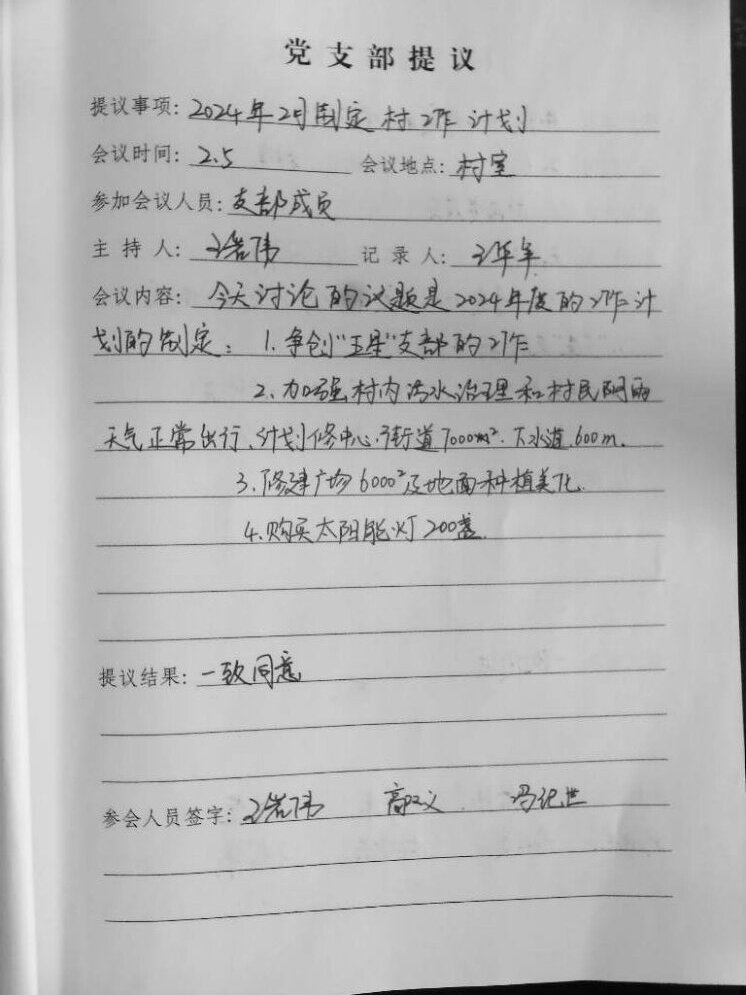 党支部提议
提议事项: 2024年2月制定村工作计划
会议时间: 2.5 会议地点: 村室
参加会议人员: 支部成员
主持人: 王岩伟 记录人:
会议内容: 今天讨论的议题是2024年度的工作计
划的制定: 1. 争创"五星"支部的工作
2、加强村内污水治理和村民阴雨
天气正常出行、计划修中心街道7000m². 下水道600m.
3.修建广场6000²及地面种植美化.
4.购买太阳能灯200盏.
提议结果: 一致同意
参会人员签字: 王岩伟